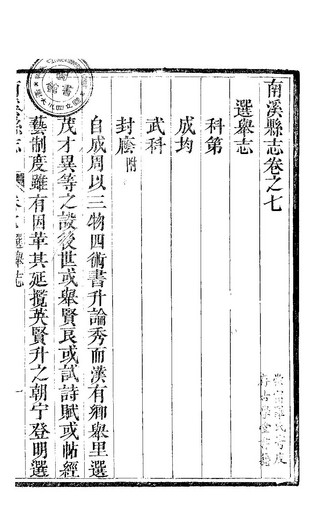 南溪縣志卷之七
選舉志
科第
成均
武科
封廕附
自成周以三物四術書升論秀而漢有鄉舉里選
茂才異等之設後世或舉賢良或試詩賦或帖經
藝制度雖有因革其延攬英賢升之朝宁登明選
南溪縣志 卷七 選舉志 一